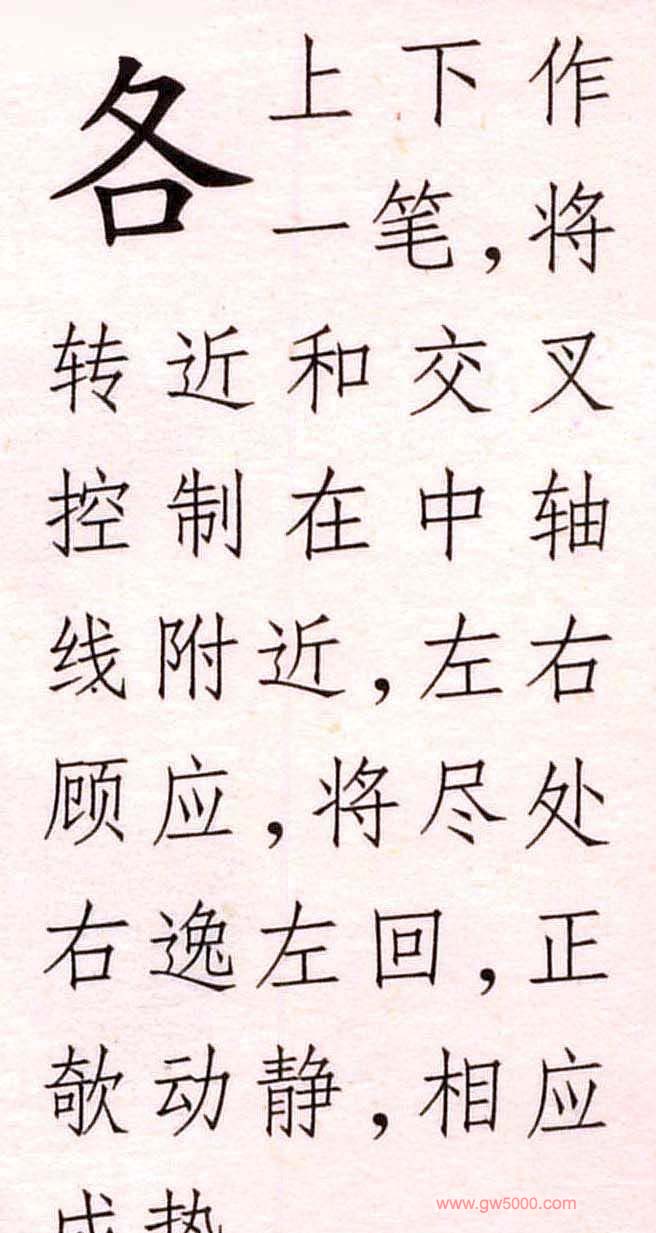 各 上下作
一笔，将
转近和交叉
控制在中轴
线附近，左右
顾应，将尽处
右逸左回，正
欹动静，相应
成势
www.gw5000.com